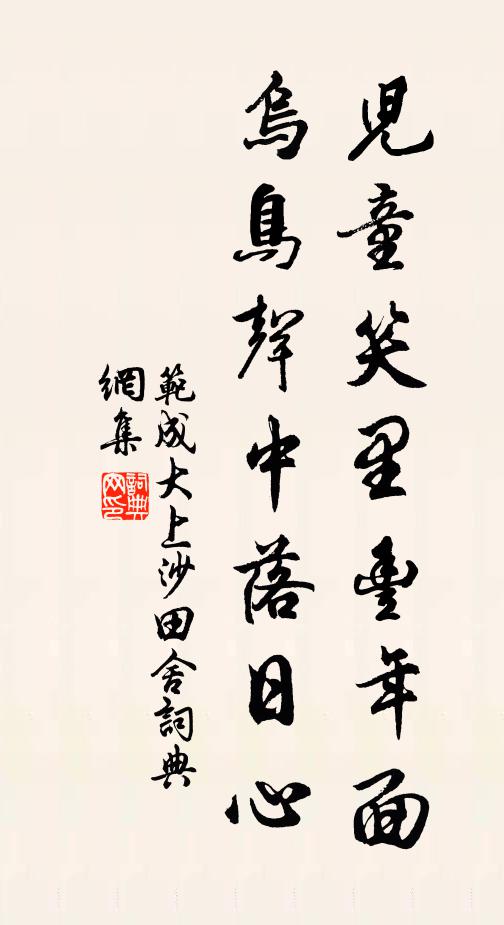 兒童笑里豐年面
烏鳥聲中落日心
範成大上沙田舍詞典
網集
詞典
网印